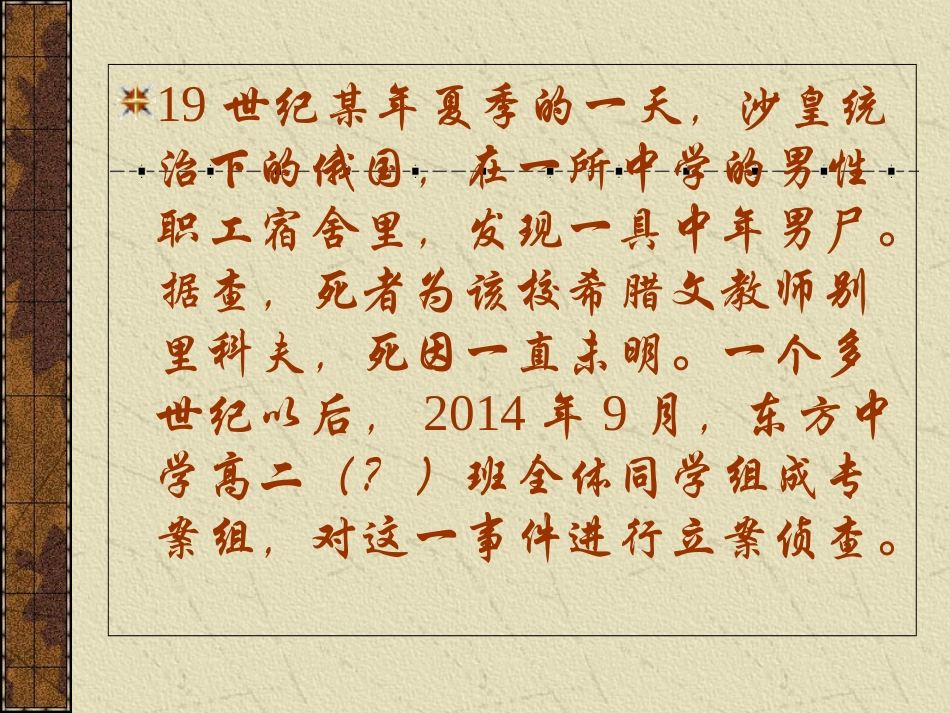 19 世纪某年夏季的一天，沙皇统
治下的俄国，在一所中学的男性
职工宿舍里，发现一具中年男尸。
据查，死者为该校希腊文教师别
里科夫，死因一直未明。一个多
世纪以后， 2014 年 9 月，东方中
学高二（？）班全体同学组成专
案组，对这一事件进行立案侦查。